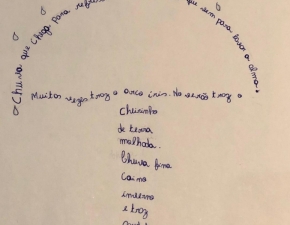 Chuva que chega para refres
que vem para lavar a alma.
Muitas vezes traz o arco iris. No verão traz o
Cheirinho
de terra
malhada.
Chuva fina
Cai no
inverno
e traz